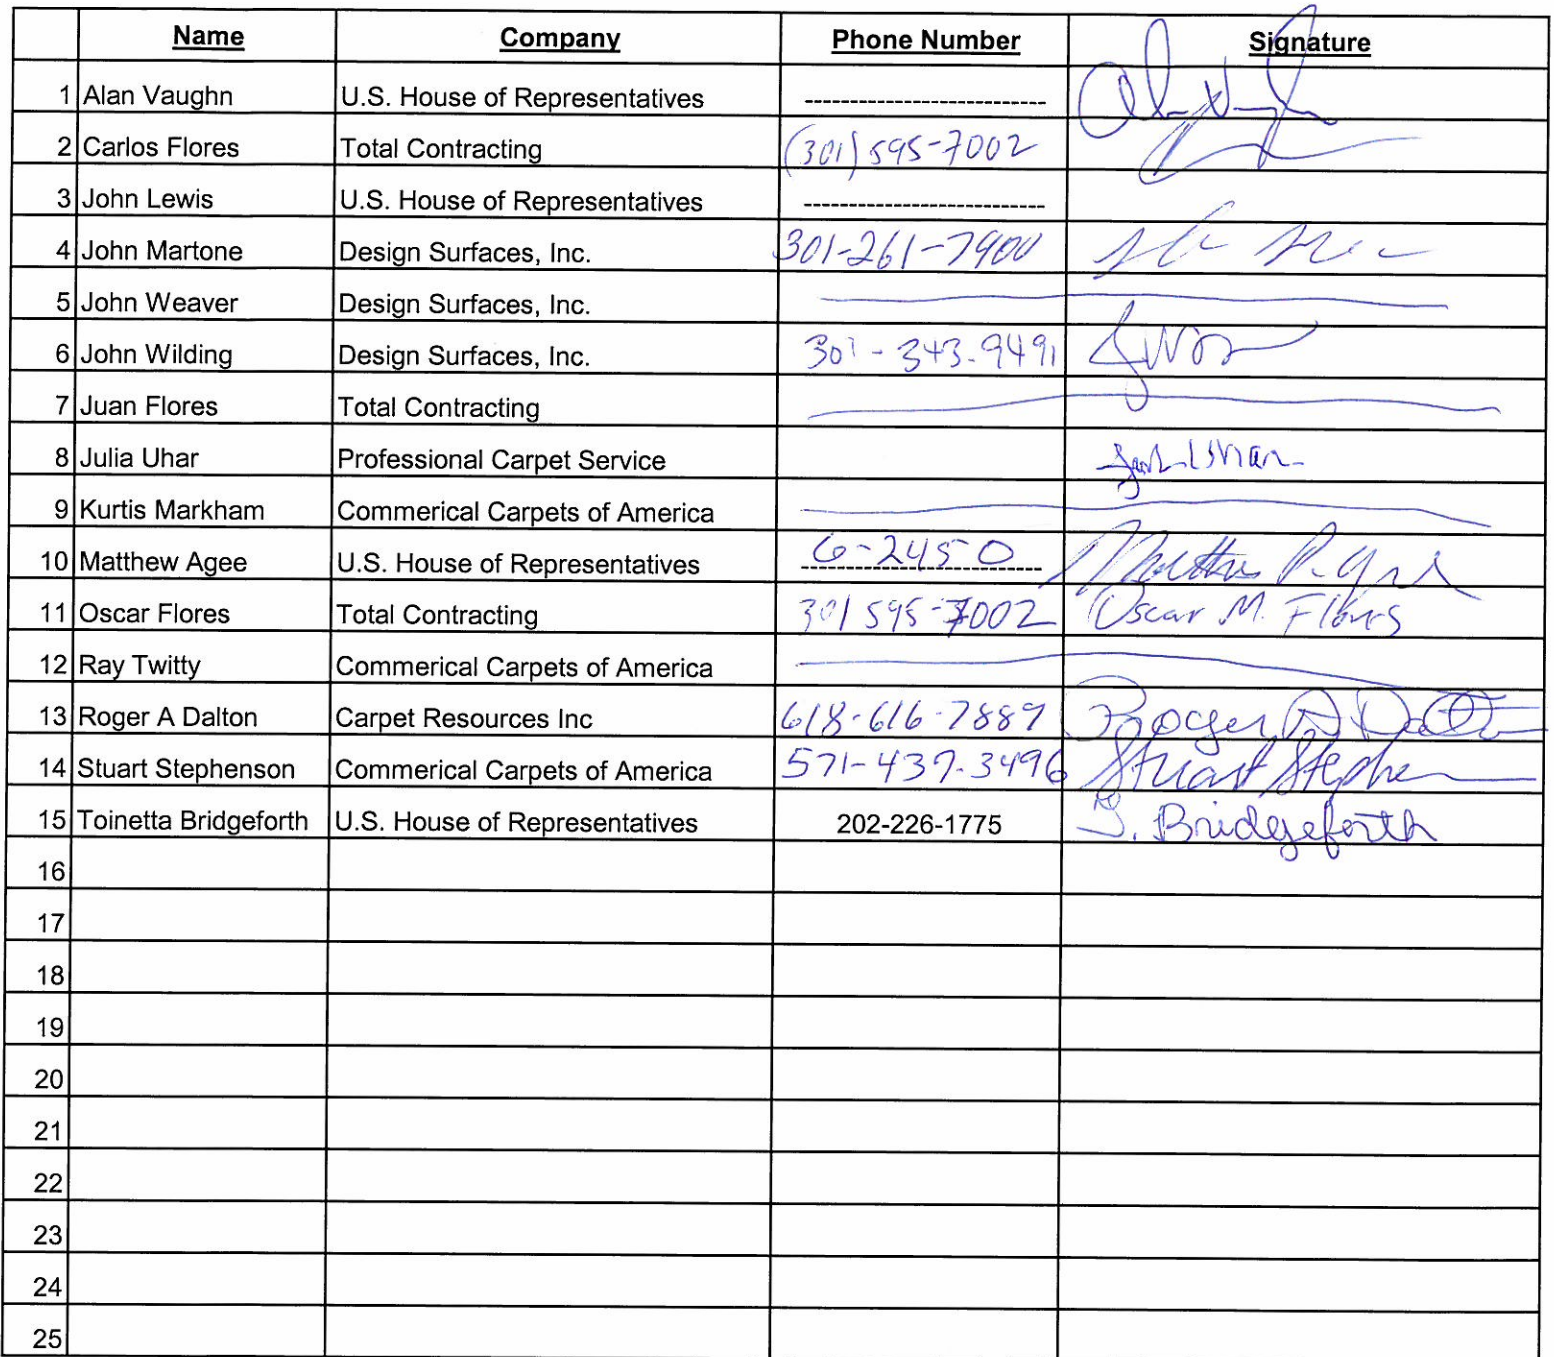 Name Company Phone Number Signature
1 Alan Vaughn U.S. House of Representatives ---------------------------
2 Carlos Flores Total Contracting (301) 595-7002
3 John Lewis U.S. House of Representatives ---------------------------
4 John Martone Design Surfaces, Inc. 301-261-7900
5 John Weaver Design Surfaces, Inc.
6 John Wilding Design Surfaces, Inc. 301-343-9491
7 Juan Flores Total Contracting
8 Julia Uhar Professional Carpet Service
9 Kurtis Markham Commerical Carpets of America
10 Matthew Agee U.S. House of Representatives 6-2450
11 Oscar Flores Total Contracting 301 595-7002 Oscar M. Flores
12 Ray Twitty Commerical Carpets of America
13 Roger A Dalton Carpet Resources Inc 618-616-7889 Roger A Dalton
14 Stuart Stephenson Commerical Carpets of America 571-437-3496 Stuart Stephen
15 Toinetta Bridgeforth U.S. House of Representatives 202-226-1775 T. Bridgeforth
16
17
18
19
20
21
22
23
24
25